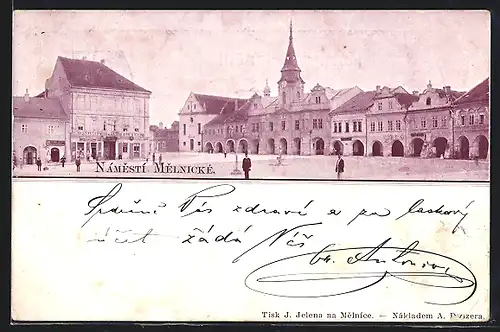 NÁMĚSTÍ MĚLNICKÉ.
Srdečně Vás zdraví a za laskavý
účet žádá Váš
Tisk J. Jelena na Mělníce. — Nákladem A. Pirszera.